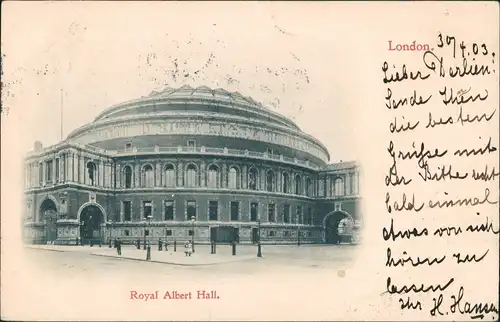 London.
30/4.03.
Lieber
Sende Ihnen
die besten
Grüsse mit
der Bitte recht
bald einmal
etwas von sich
hören zu
lassen
Ihr H. Hansen
Royal Albert Hall.